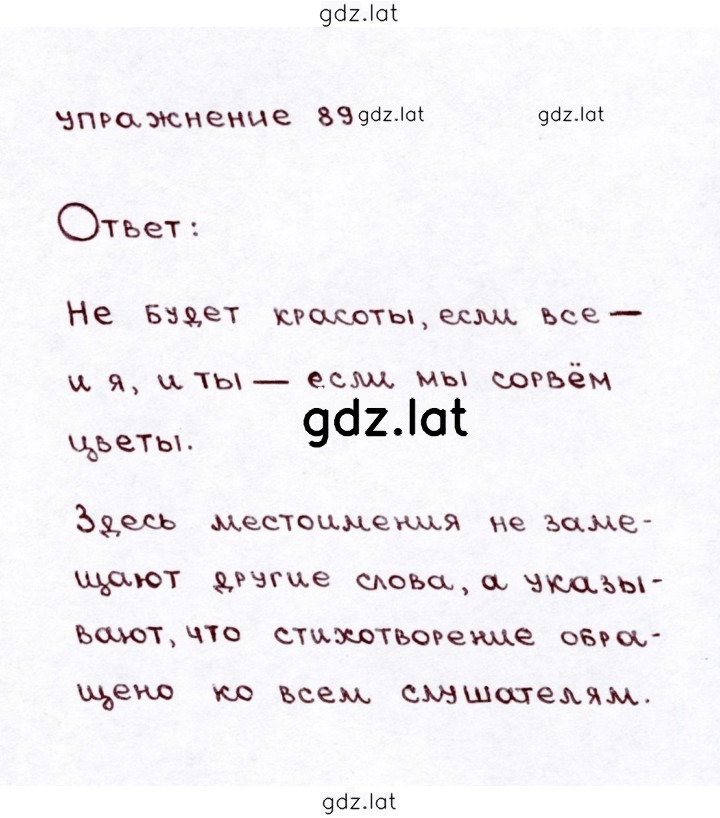 gdz.lat
упражнение 89 gdz.lat gdz.lat
Ответ:
Не будет красоты, если все —
и я, и ты — если мы сорвём
gdz.lat
цветы.
Здесь местоимения не заме-
щают другие слова, а указы-
вают, что стихотворение обра-
щено ко всем слушателям.
gdz.lat